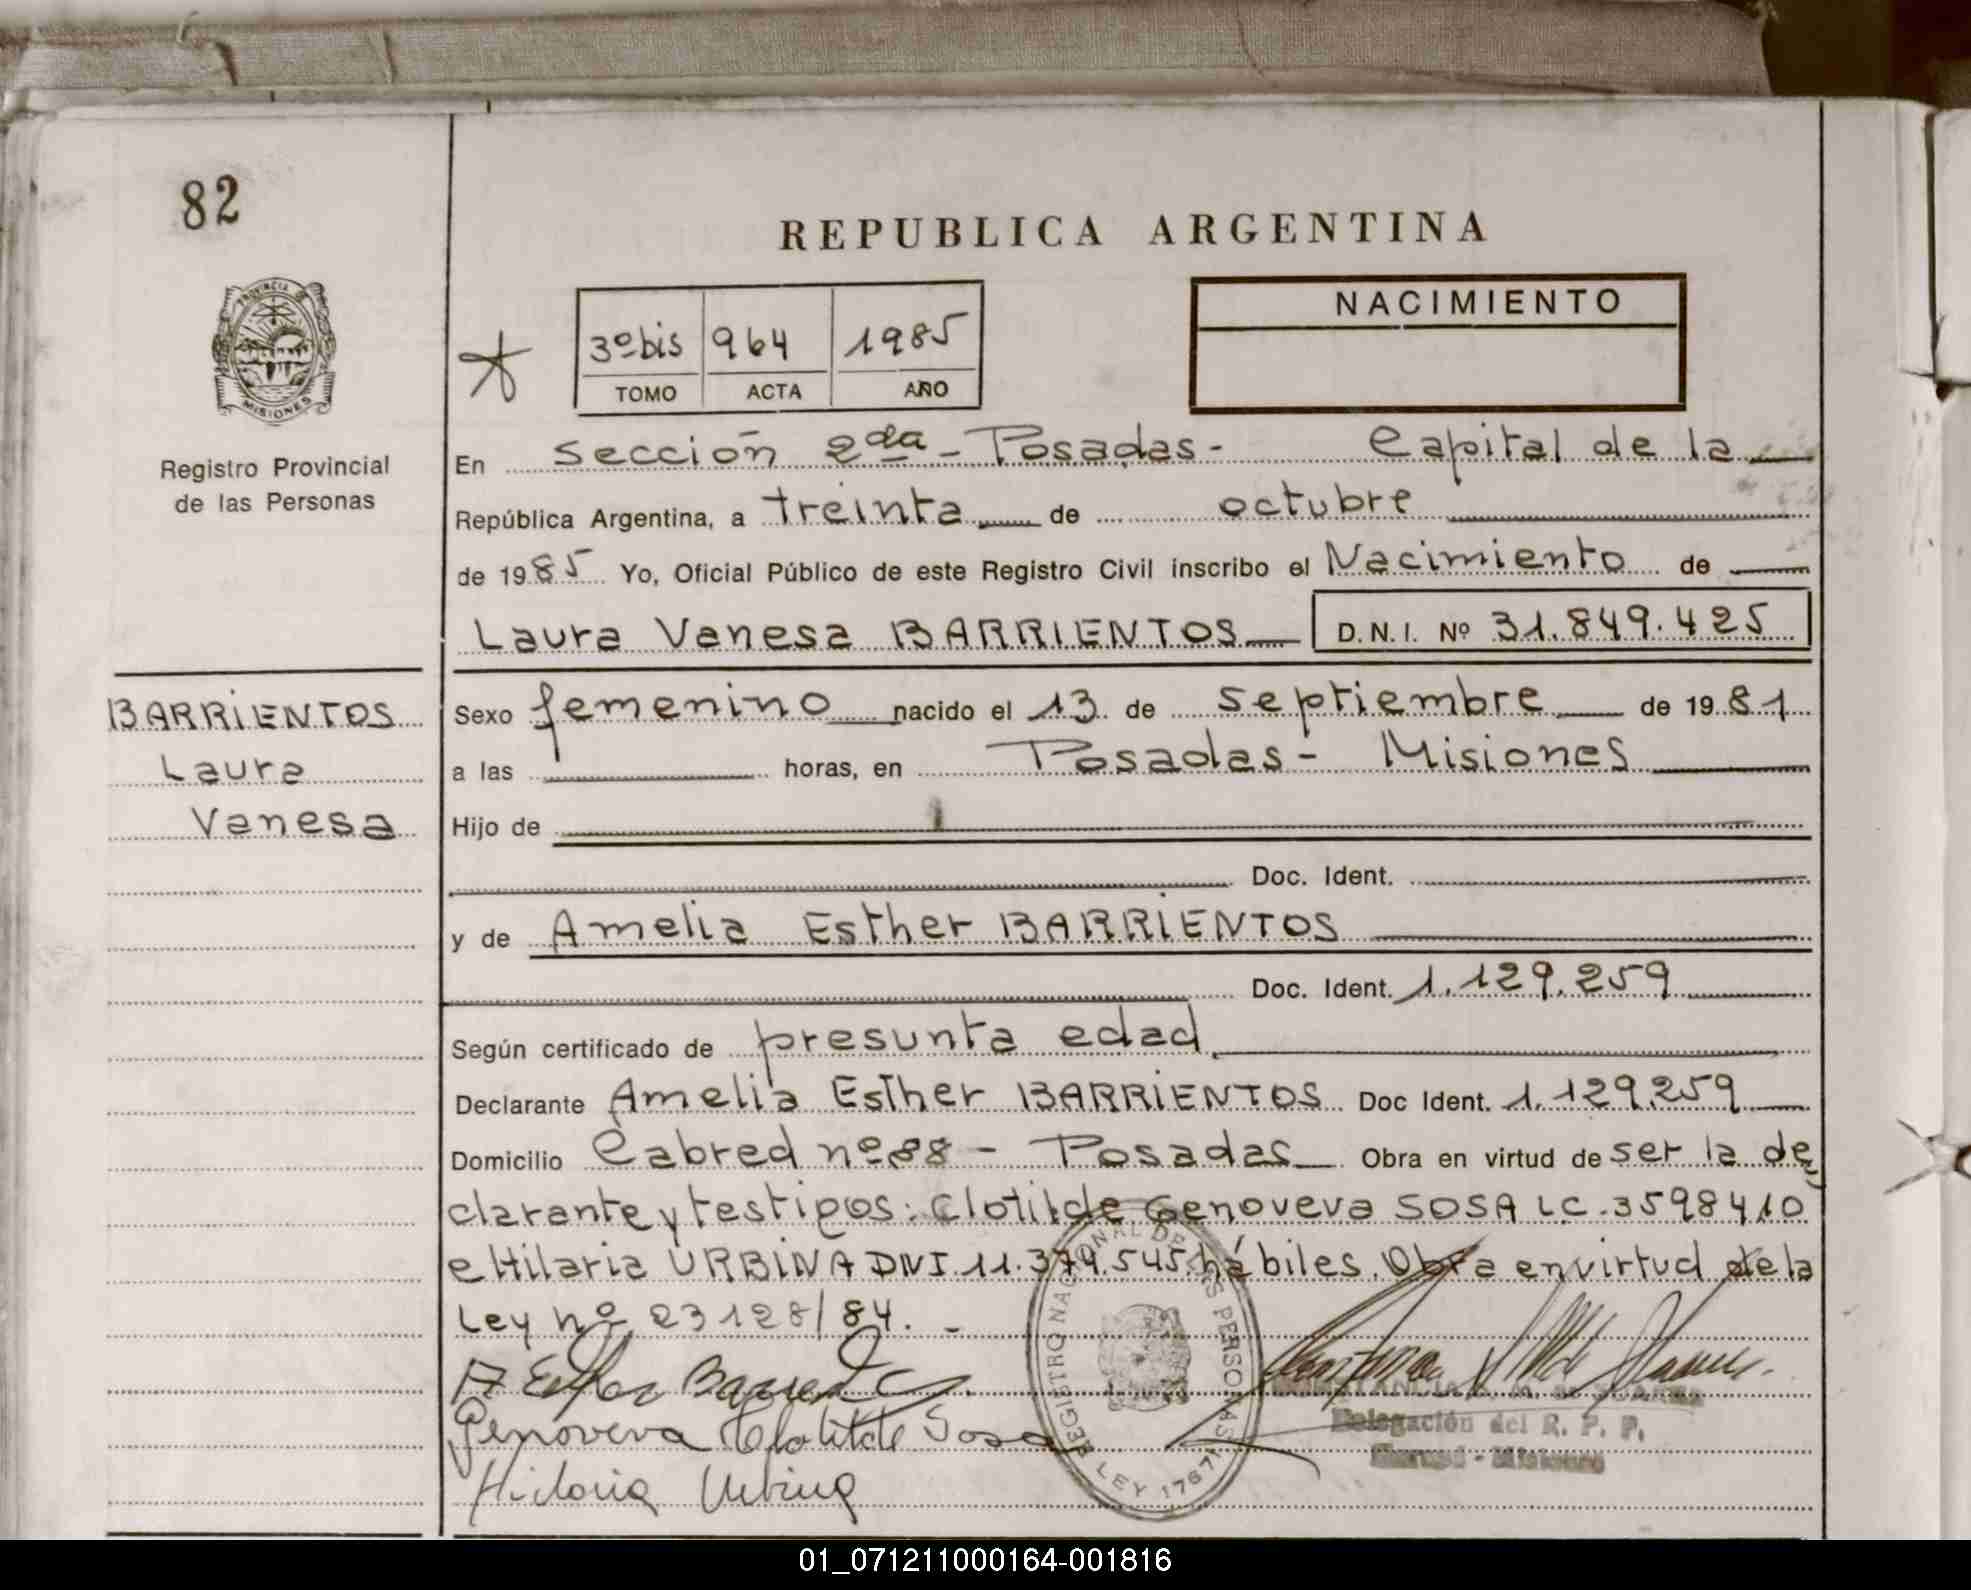 82
REPUBLICA ARGENTINA
PROVINCIA DE
MISIONES
Registro Provincial
de las Personas
3º bis 964 1985
TOMO ACTA AÑO
NACIMIENTO
En Sección 2da - Posadas - Capital de la
República Argentina, a treinta de octubre
de 1985 Yo, Oficial Público de este Registro Civil inscribo el Nacimiento de
Laura Vanesa BARRIENTOS D.N.I. Nº 31.849.425
BARRIENTOS
Laura
Vanesa
Sexo femenino nacido el 13 de septiembre de 1981
a las horas, en Posadas - Misiones
Hijo de
Doc. Ident.
y de Amelia Esther BARRIENTOS
Doc. Ident. 1.129.259
Según certificado de presunta edad
Declarante Amelia Esther BARRIENTOS Doc Ident. 1.129.259
Domicilio Cabred nº 88 - Posadas Obra en virtud de ser la de
clarante y testigos: Clotilde Genoveva SOSA LC. 3598410
e Hilaria URBINA DNI. 11.379.545 hábiles. Obra en virtud de la
Ley nº 23128/84. -
Genoveva Clotilde Sosa
Hilaria Urbina
REGISTRO NACIONAL DE LAS PERSONAS
LEY 17671
Delegación del R. P. P.
01_071211000164-001816